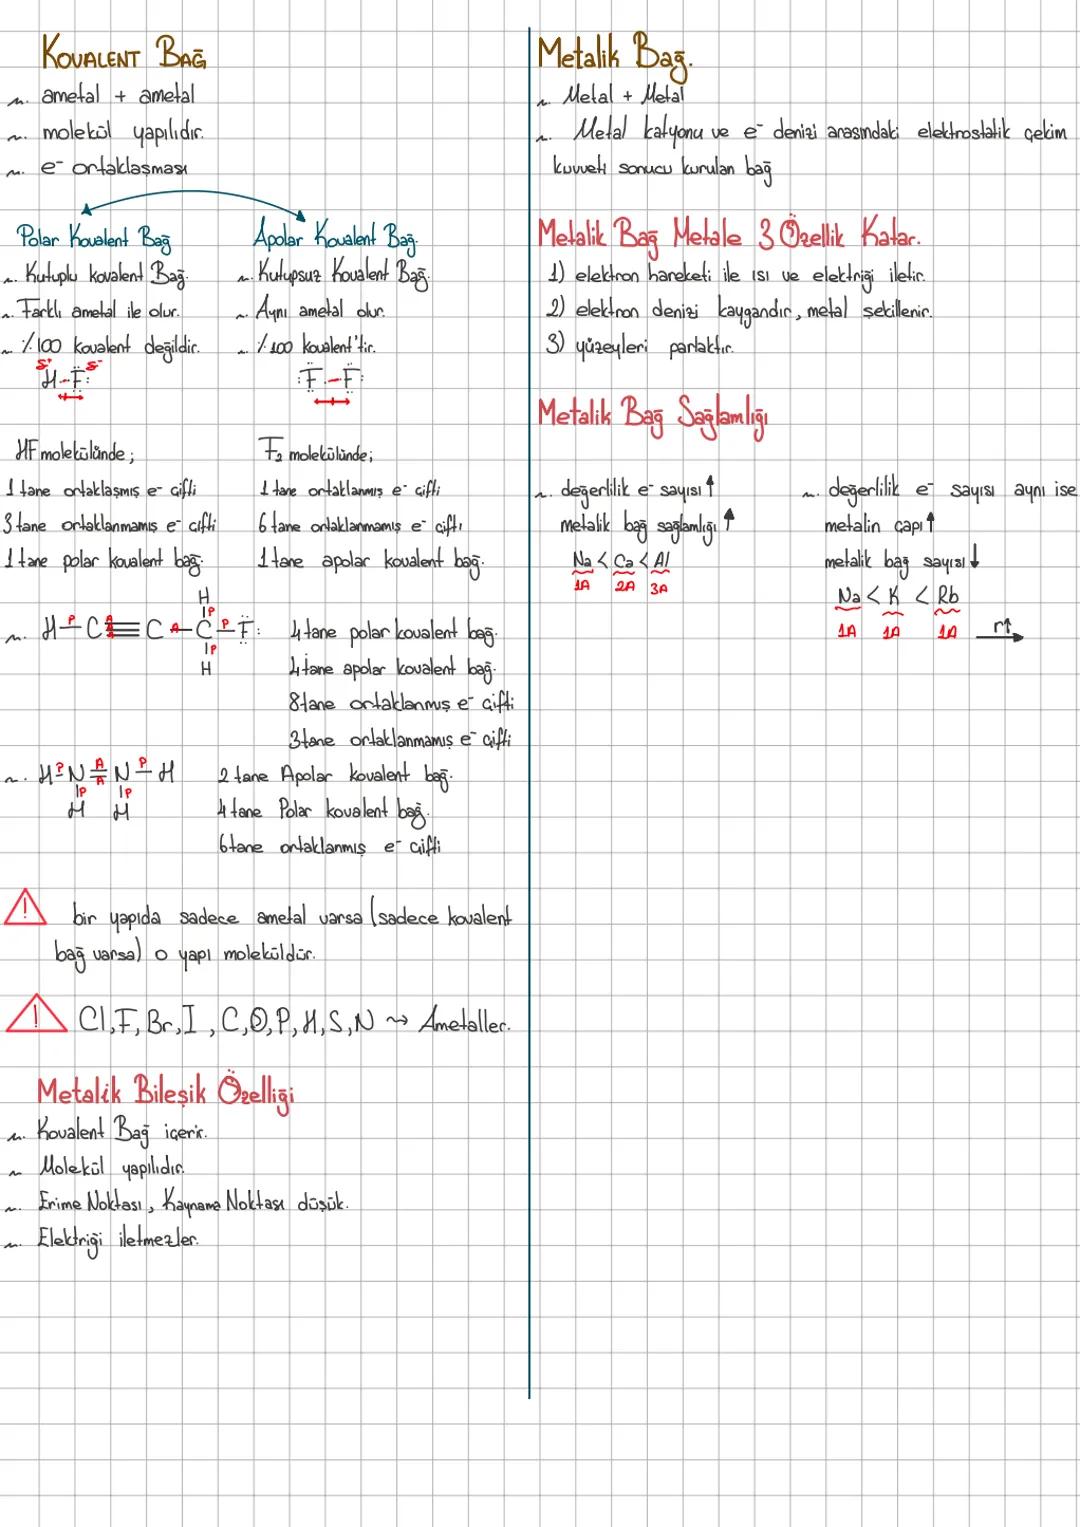 KOVALENT BAĞ
~. ametal + ametal
~. molekül yapılıdır.
~. e⁻ ortaklaşması
Polar Kovalent Bağ
~. Kutuplu kovalent Bağ.
~. Farklı ametal ile olur.
~ %100 kovalent değildir.
δ⁺ δ⁻
H-F:
HF molekülünde;
1 tane ortaklaşmış e⁻ çifti
3 tane ortaklanmamış e⁻ çifti
1 tane polar kovalent bağ.
Apolar Kovalent Bağ.
~. Kutupsuz Kovalent Bağ.
~ Aynı ametal olur.
~. %100 kovalent'tir.
:F-F:
F₂ molekülünde;
1 tane ortaklanmış e⁻ çifti
6 tane ortaklanmamış e⁻ çifti
1 tane apolar kovalent bağ.
H
P
~. H P C A A A C A C P F:
P
H
4 tane polar kovalent bağ.
4 tane apolar kovalent bağ.
8 tane ortaklanmış e⁻ çifti
3 tane ortaklanmamış e⁻ çifti
~. H P N A A N P H
P P
H H
2 tane Apolar kovalent bağ.
4 tane Polar kovalent bağ.
6 tane ortaklanmış e⁻ çifti
! bir yapıda sadece ametal varsa (sadece kovalent
bağ varsa) o yapı moleküldür.
! Cl, F, Br, I, C, O, P, H, S, N ⇝ Ametaller.
Metalik Bileşik Özelliği
~. Kovalent Bağ içerir.
~ Molekül yapılıdır.
~. Erime Noktası, Kaynama Noktası düşük.
~. Elektriği iletmezler.
Metalik Bağ.
~ Metal + Metal
~. Metal katyonu ve e⁻ denizi arasındaki elektrostatik çekim
kuvveti sonucu kurulan bağ
Metalik Bağ Metale 3 Özellik Katar.
1) elektron hareketi ile ısı ve elektriği iletir.
2) elektron denizi kaygandır, metal şekillenir.
3) yüzeyleri parlaktır.
Metalik Bağ Sağlamlığı
~. değerlilik e⁻ sayısı ↑
metalik bağ sağlamlığı ↑
Na < Ca < Al
1A 2A 3A
~. değerlilik e⁻ sayısı aynı ise
metalin çapı ↑
metalik bağ sayısı ↓
Na < K < Rb
1A 1A 1A r↑ →